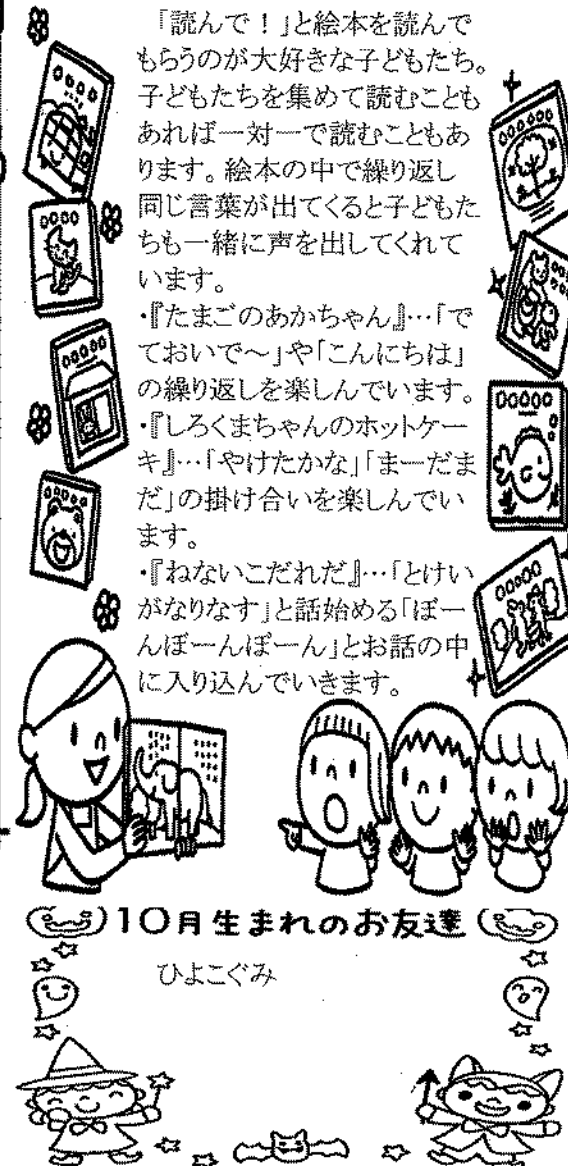 「読んで！」と絵本を読んで
もらうのが大好きな子どもたち。
子どもたちを集めて読むことも
あれば一対一で読むこともあ
ります。絵本の中で繰り返し
同じ言葉が出てくると子どもた
ちも一緒に声を出してくれて
います。
・『たまごのあかちゃん』…「で
ておいで～」や「こんにちは」
の繰り返しを楽しんでいます。
・『しろくまちゃんのホットケー
キ』…「やけたかな」「まーだま
だ」の掛け合いを楽しんでい
ます。
・『ねないこだれだ』…「とけい
がなりなす」と話始める「ぼー
んぼーんぼーん」とお話の中
に入り込んでいきます。
10月生まれのお友達
ひよこぐみ